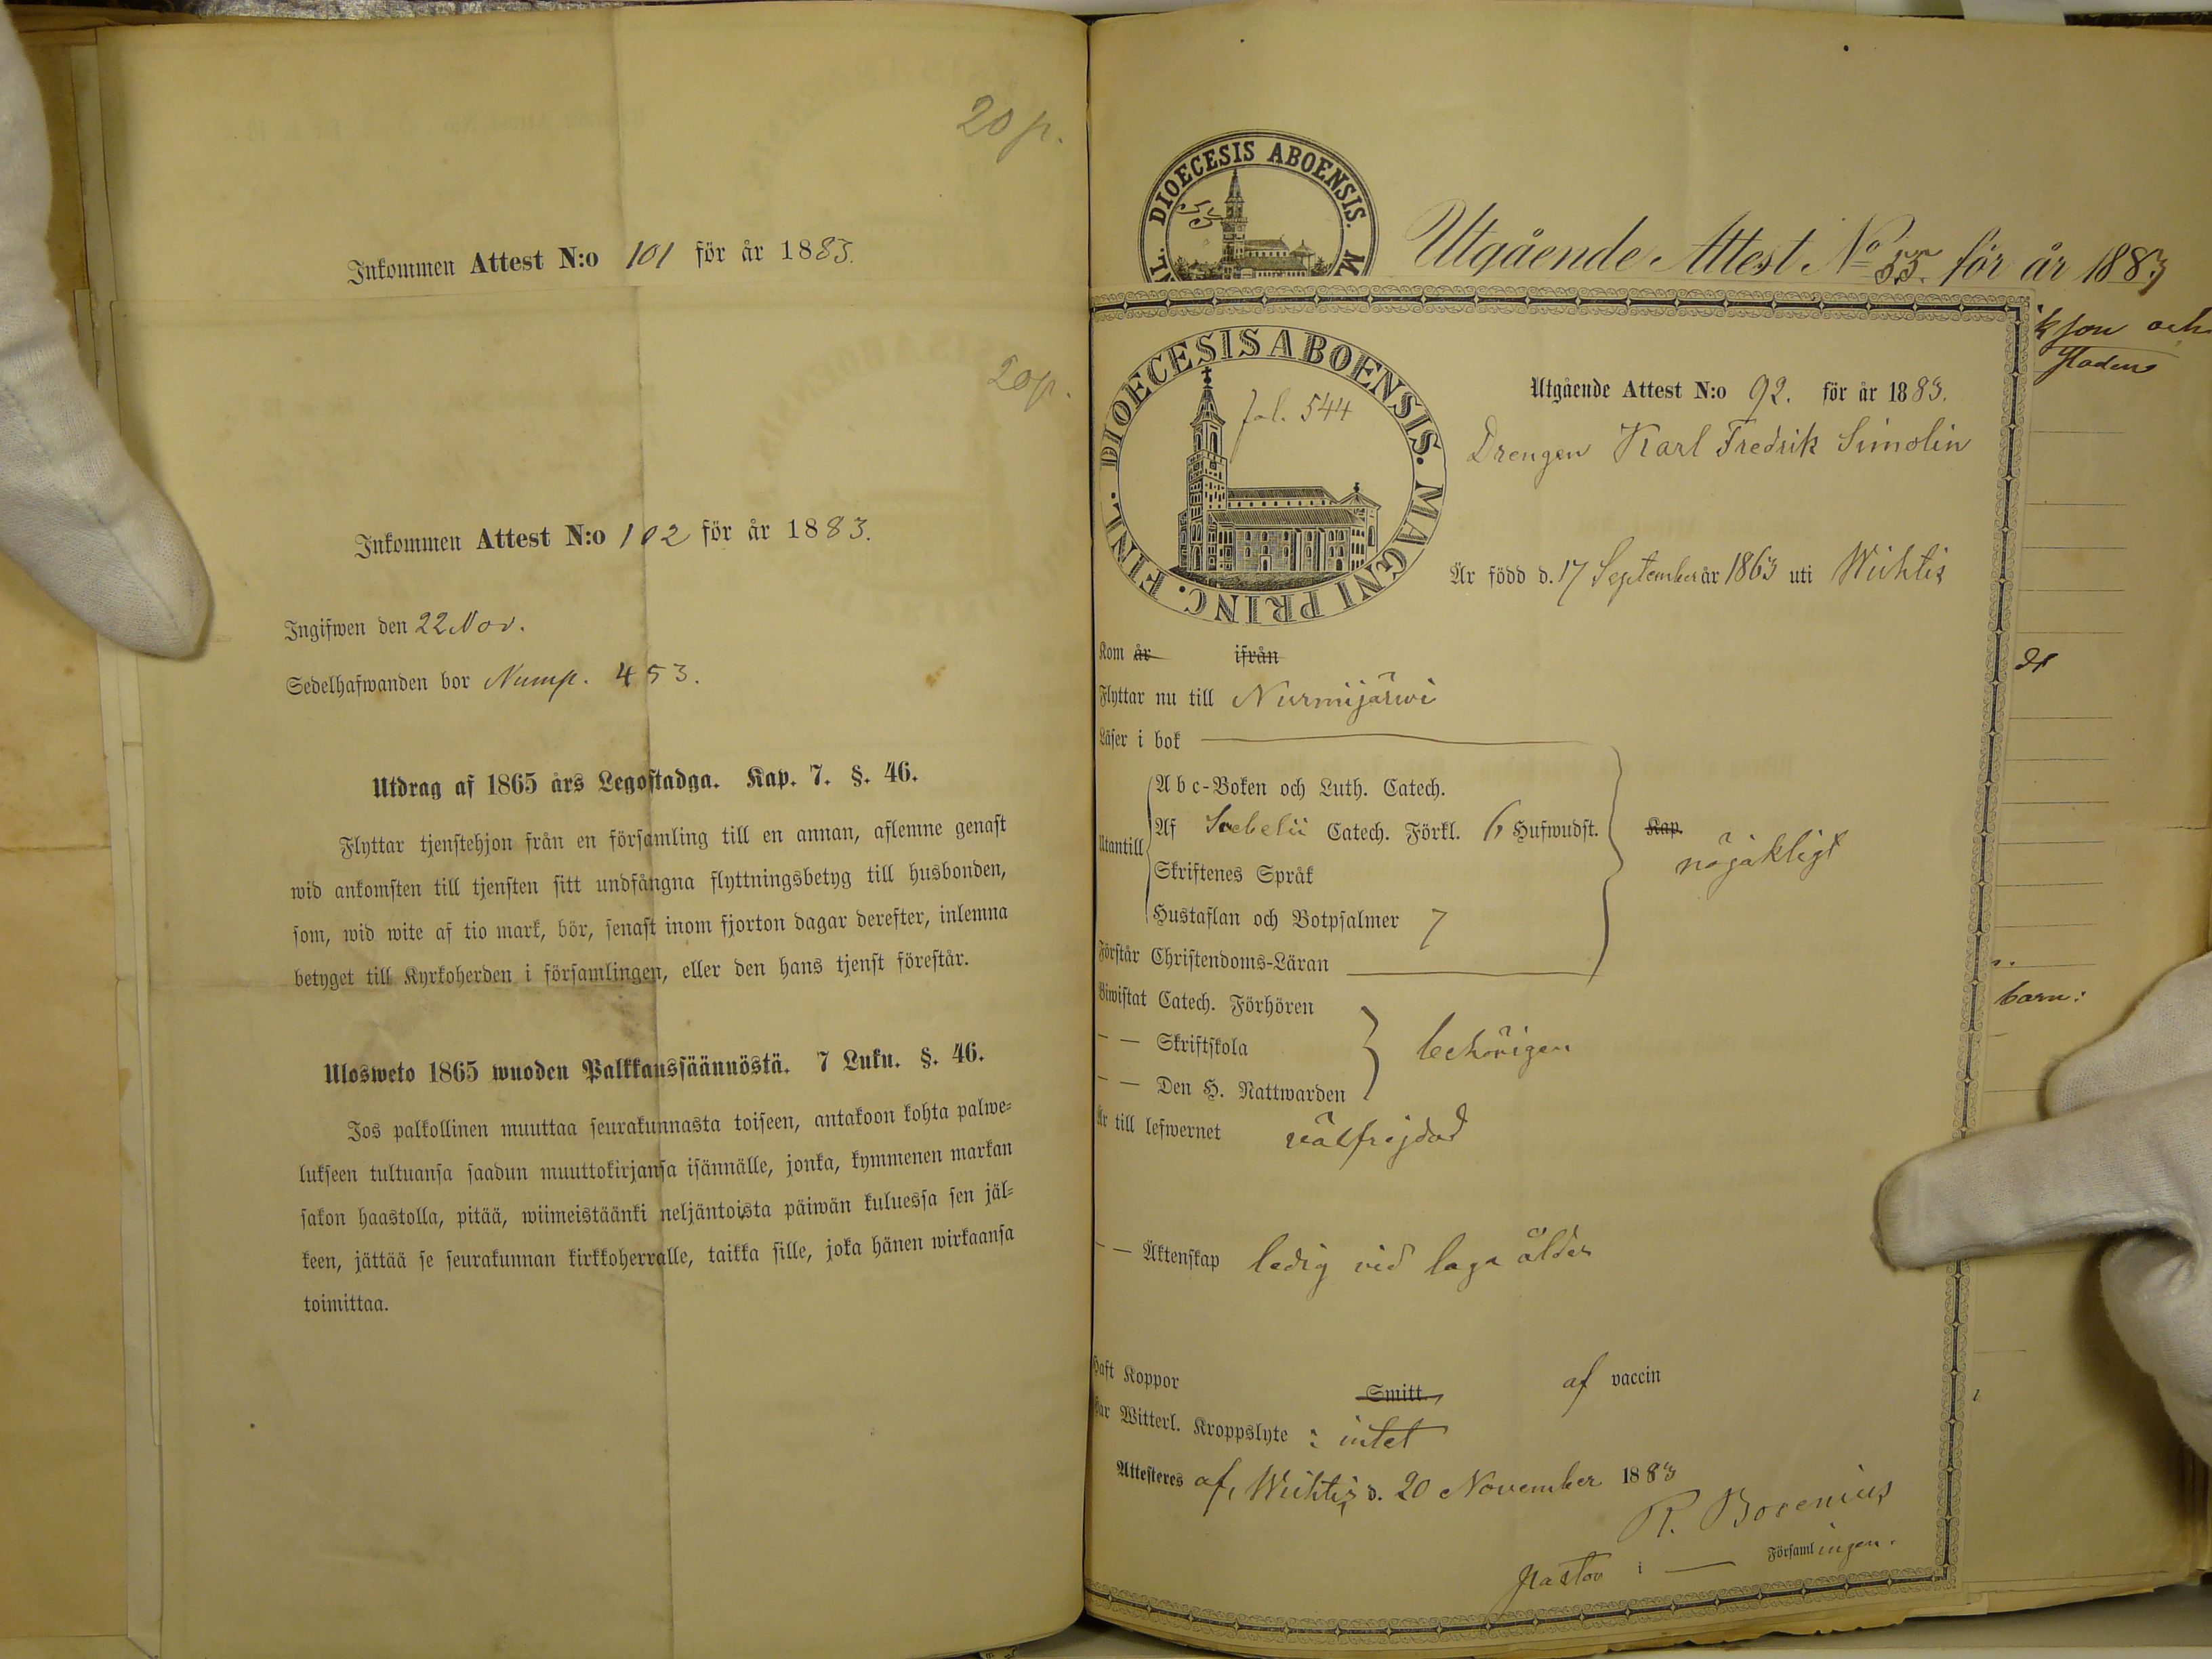 20 p.
Inkommen Attest N:o 101 för år 1883.
20 p.
Inkommen Attest N:o 102 för år 1883.
Ingifwen den 22 Nov.
Sedelhafwanden bor Nump. 453.
Utdrag af 1865 års Legostadga. Kap. 7. §. 46.
Flyttar tjenstehjon från en församling till en annan, aflemne genast
wid ankomsten till tjensten sitt undfångna flyttningsbetyg till husbonden,
som, wid wite af tio mark, bör, senast inom fjorton dagar derefter, inlemna
betyget till Kyrkoherden i församlingen, eller den hans tjenst förestår.
Ulosweto 1865 wuoden Palkkaussäännöstä. 7 Luku. §. 46.
Jos palkollinen muuttaa seurakunnasta toiseen, antakoon kohta palwe-
lukseen tultuansa saadun muuttokirjansa isännälle, jonka, kymmenen markan
sakon haastolla, pitää, wiimeistäänki neljäntoista päiwän kuluessa sen jäl-
keen, jättää se seurakunnan kirkkoherralle, taikka sille, joka hänen wirkaansa
toimittaa.
L. DIOECESIS ABOENSIS. M
Utgående Attest No 55. för år 1883
son och
barn:
FINL. DIOECESIS ABOENSIS. MAGNI PRINC.
fol. 544
Utgående Attest N:o 92. för år 1883.
Drengen Karl Fredrik Simolin
Är född d. 17 September år 1863 uti Wichtis
Kom år ifrån
Flyttar nu till Nurmijärwi
Läser i bok
Utantill
A b c-Boken och Luth. Catech.
Af Svebelii Catech. Förkl. 6 Hufwudst. Kap.
nöjaktligt
Skriftenes Språk
Hustaflan och Botpsalmer 7
Förstår Christendoms-Läran
Biwistat Catech. Förhören
— — Skriftskola behörigen
— — Den H. Nattwarden
Är till lefwernet välfrejdad
— — Äktenskap ledig vid laga ålder
Haft Koppor Smitt. af vaccin
Har Witterl. Kroppslyte : intet
Attesteres af, Wichtis d. 20 November 1883
R. Borenius
Pastor i — Församlingen.